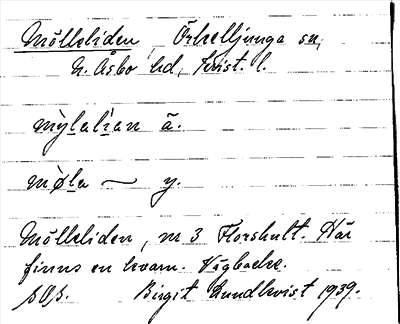 Mölleliden, Örkelljunga sn,
N. Åsbo hd, Krist. l.
mỳlalìan ã.
mø̀la ~ y.
Mölleliden, nr 3 Florshult. Här
finns en kvarn. Vägbacke.
Birgit Lundkvist 1939.